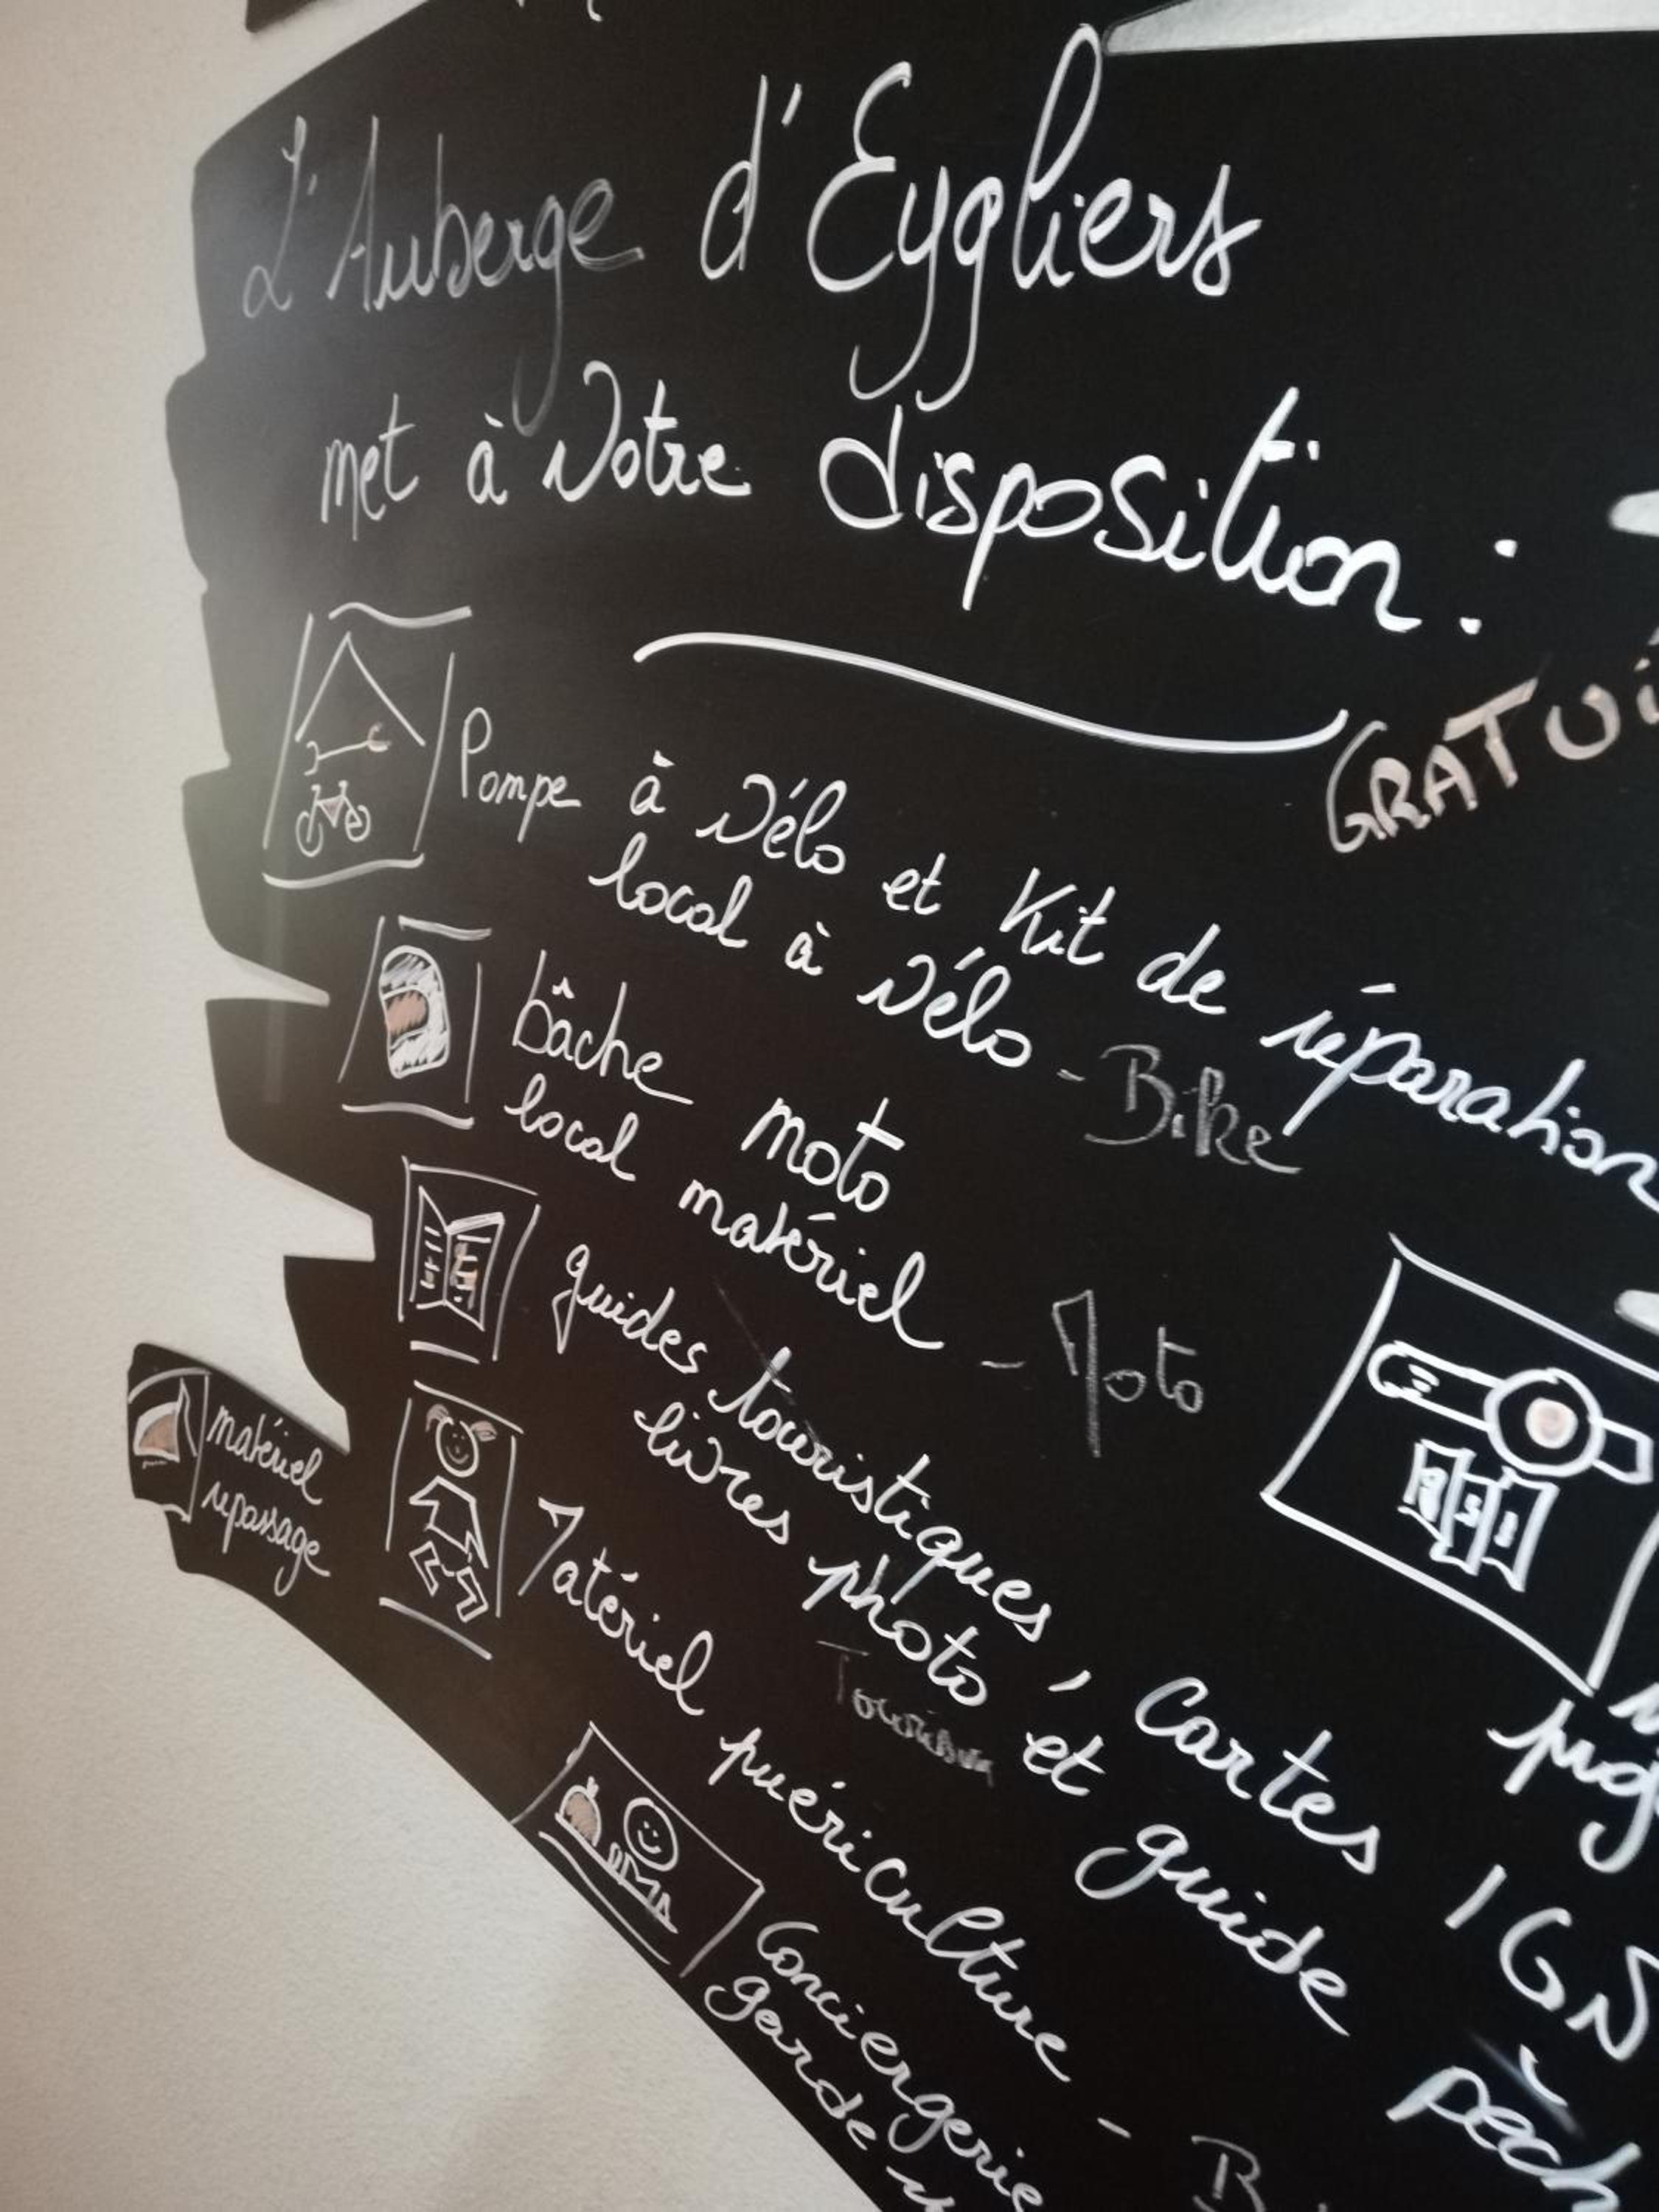 L'Auberge d'Eygliers
met à Votre disposition :
GRATUI
Pompe à Vélo et Kit de réparation
local à Vélo - Bike
bâche moto
local matériel - Moto
guides touristiques, Cartes IGN
livres photo et guide pêch
Tourism
Matériel puériculture -
matériel
repassage
Conciergerie
garde